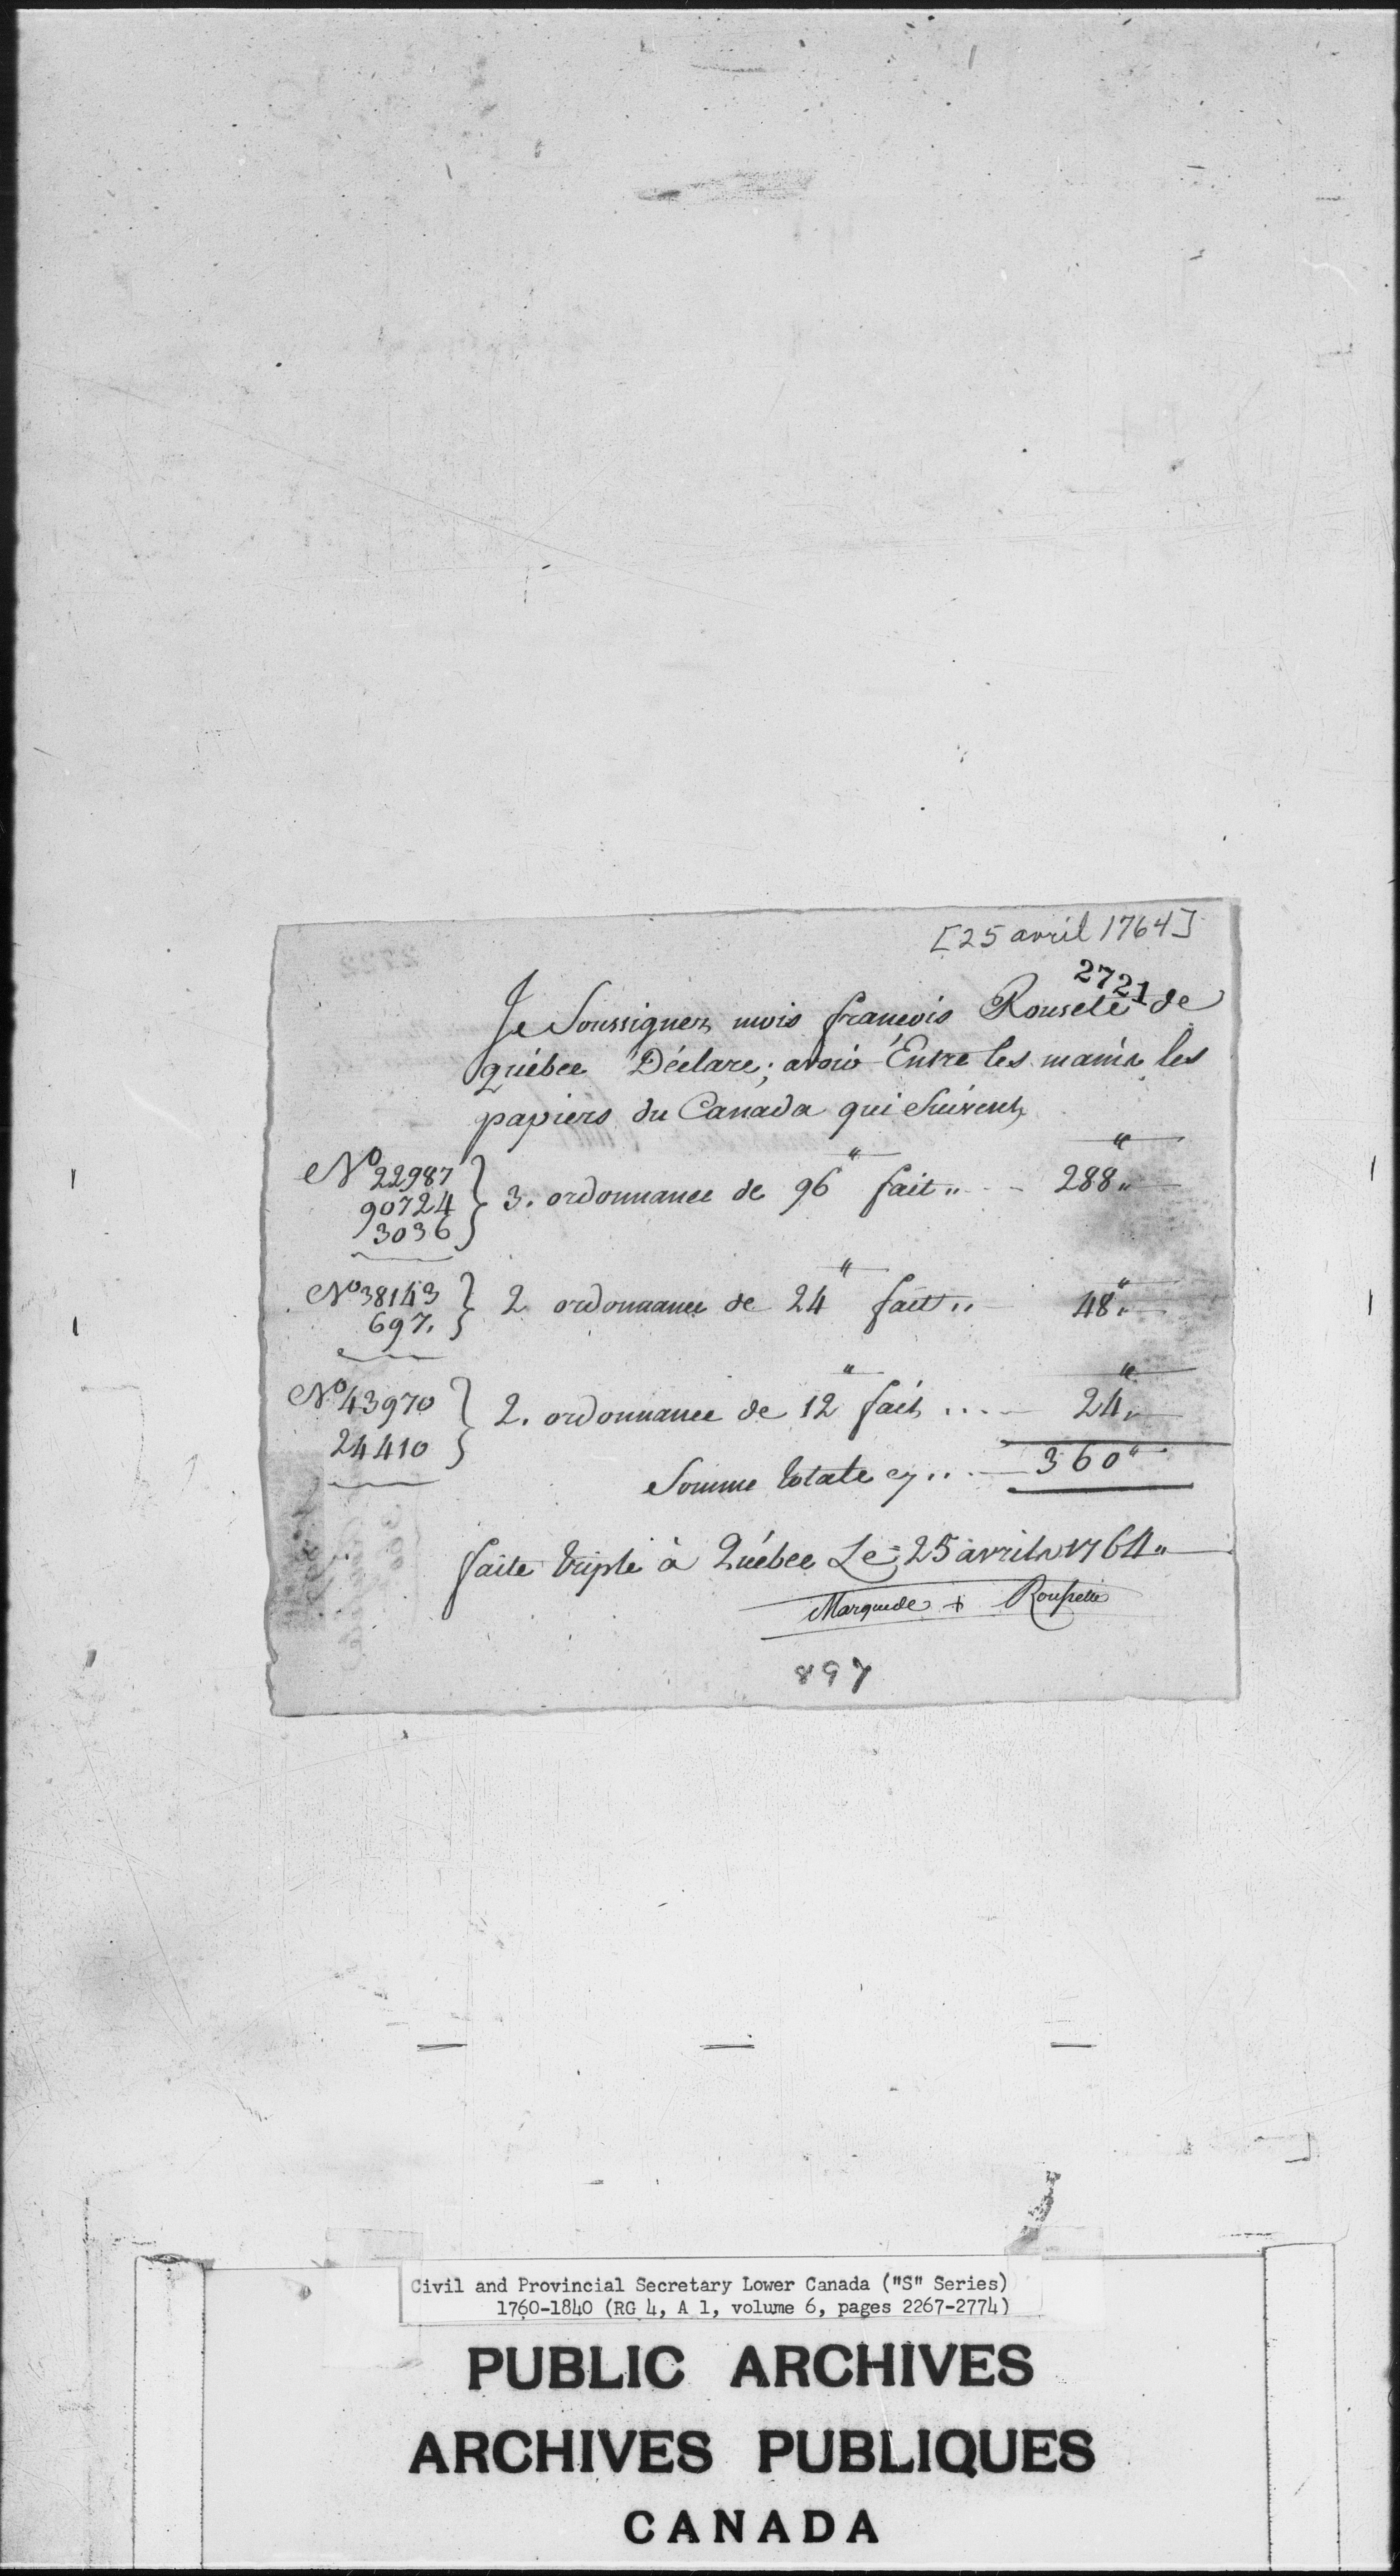 [25 avril 1764]
2721
Je Soussignez mois francois Rousele de
québec Déclare; avoir Entre les mains les
papiers du Canada qui Suivent
" "
No 22987
90724 } 3. ordonnance de 96 fait " - - 288 "
3036
" "
No 38143 } 2 ordonnance de 24 fait " 48 "
697.
" "
No 43970 } 2. ordonnance de 12 fait .... 24 "
24410
Somme totale cy ... 360 "
faite triple à Québec Le 25 avril 1764 "
Marque de + Roussette
897
Civil and Provincial Secretary Lower Canada ("S" Series)
1760-1840 (RG 4, A 1, volume 6, pages 2267-2774)
PUBLIC ARCHIVES
ARCHIVES PUBLIQUES
CANADA